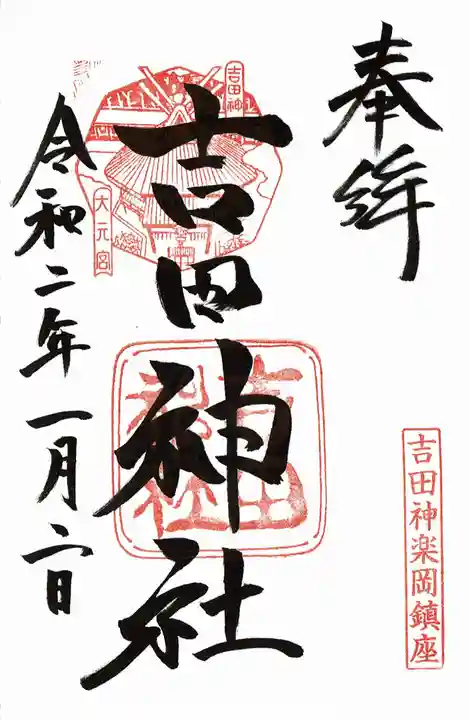 奉拜
吉田神楽岡鎮座
吉田神社
吉田神
大元宮
吉田神社
令和二年一月二日